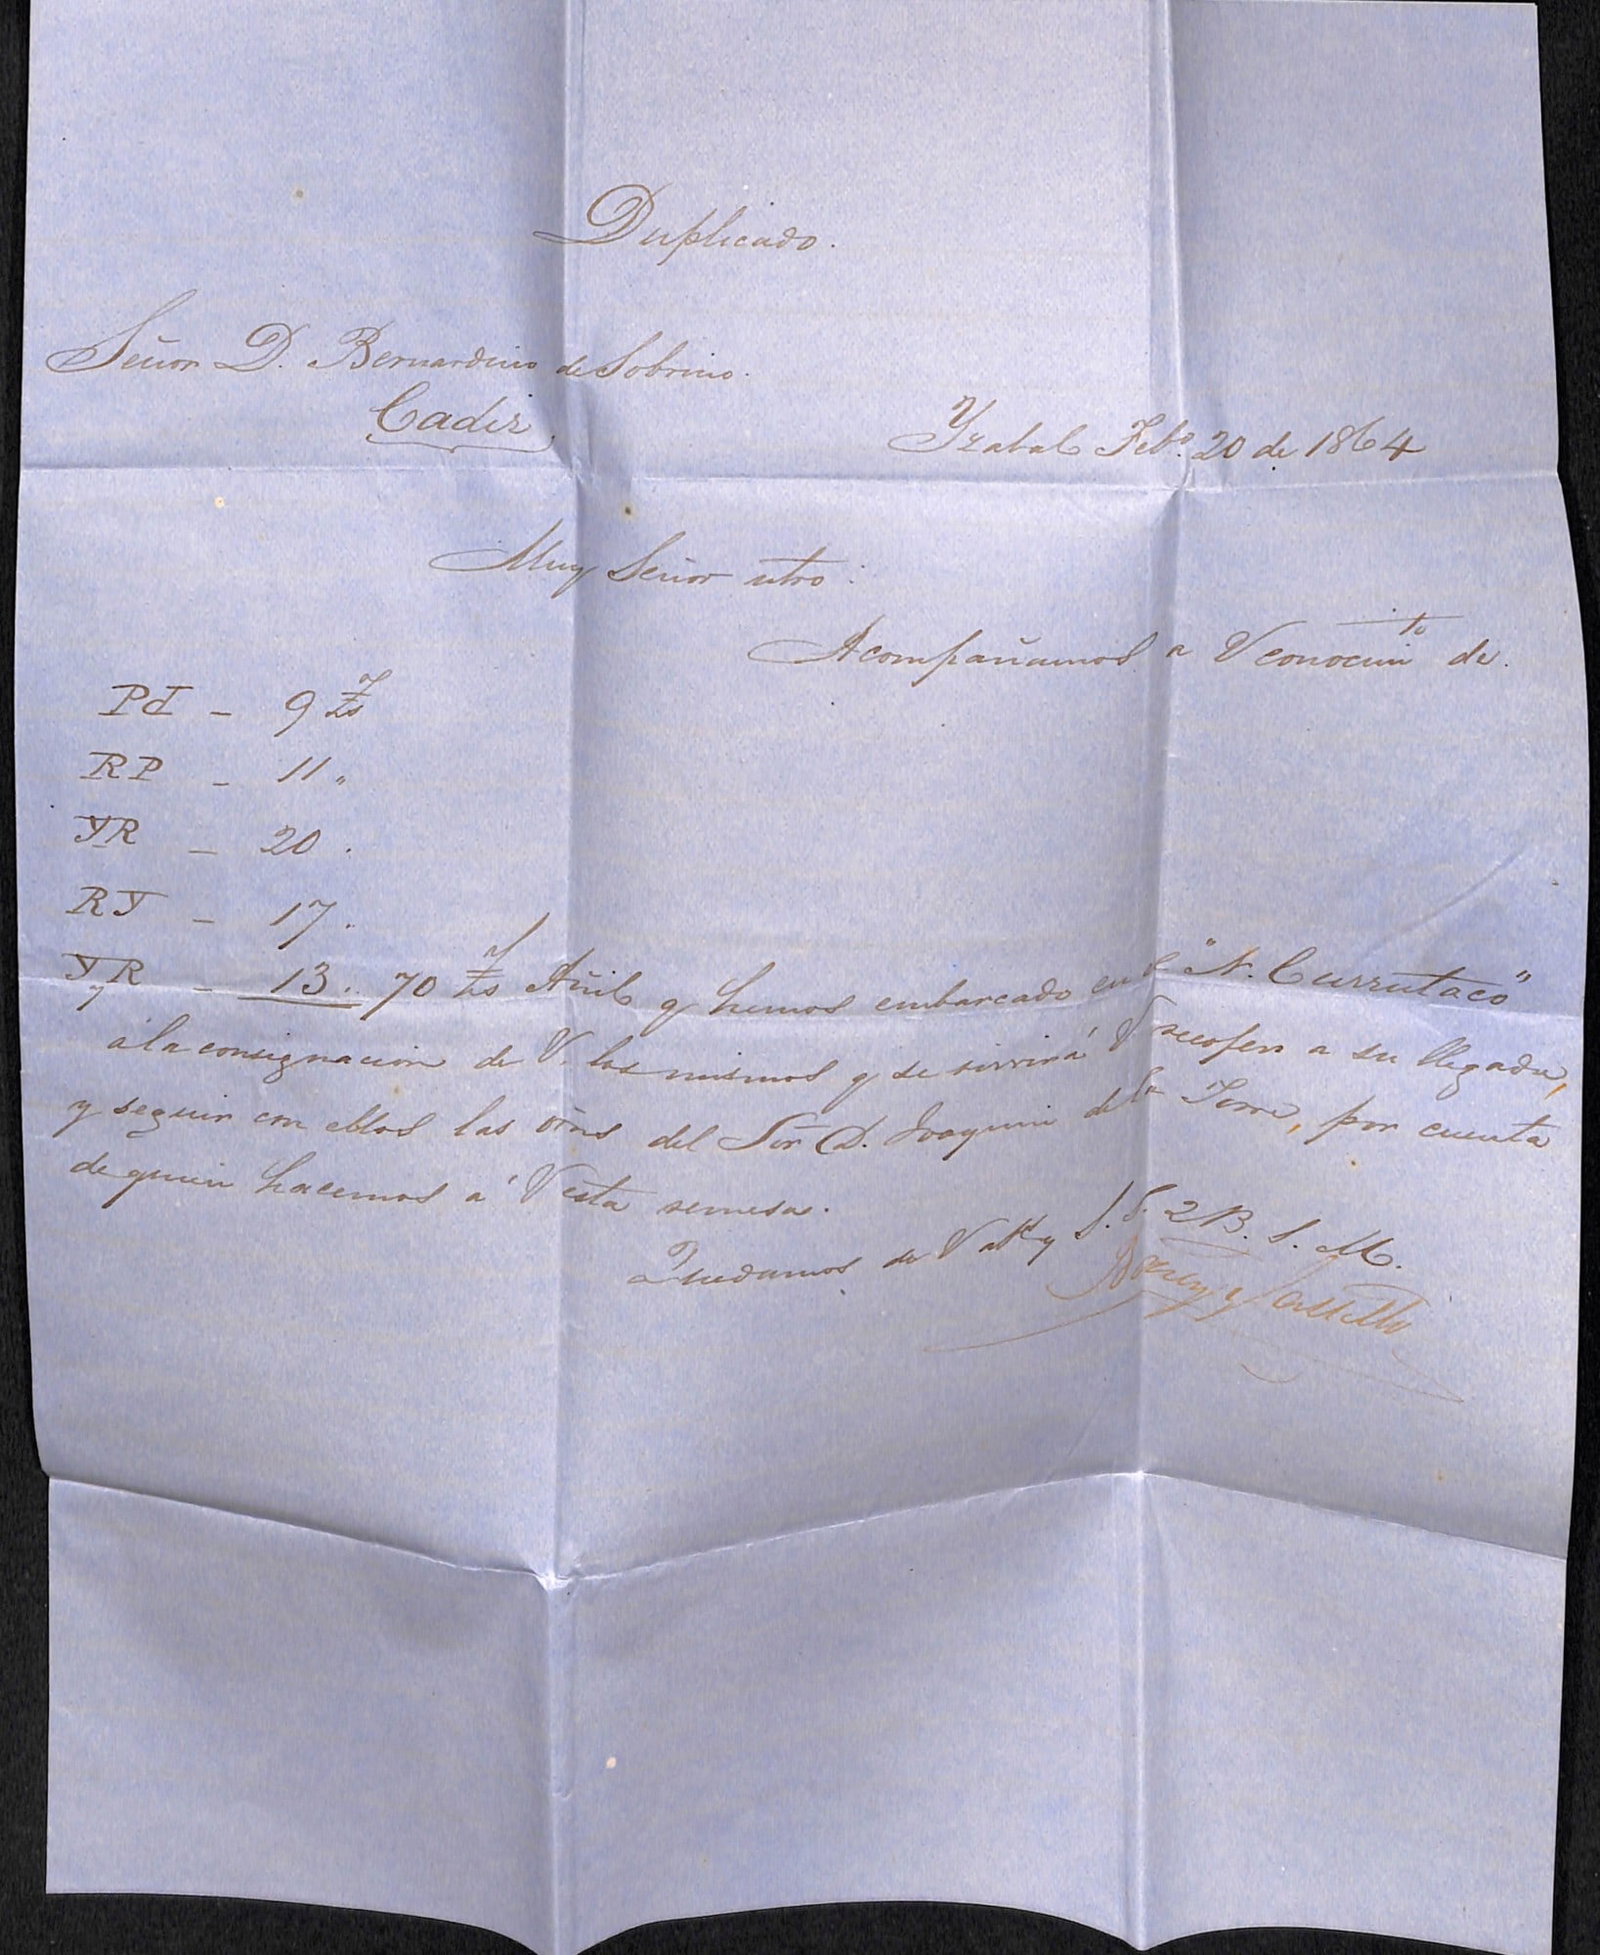 Duplicado.
Señor D. Bernardino de Sobrino.
Cadiz
Yzabal Febo. 20 de 1864
Muy Señor ntro:
Acompañamos a V conocimto de
PJ - 9 Zs
RP - 11 "
YR - 20 .
RY - 17 .
YR - 13 . 70 Zs Añil q hemos embarcado en el "N. Currutaco"
á la consignacion de V. los mismos q se sirvirá V recojer a su llegada,
y seguir con ellos las orns del Sor D. Joaquin de la Torre, por cuenta
de quien hacemos á V esta remesa.
Quedamos de V atts y S. S. Q B. S. M.
y Castillo